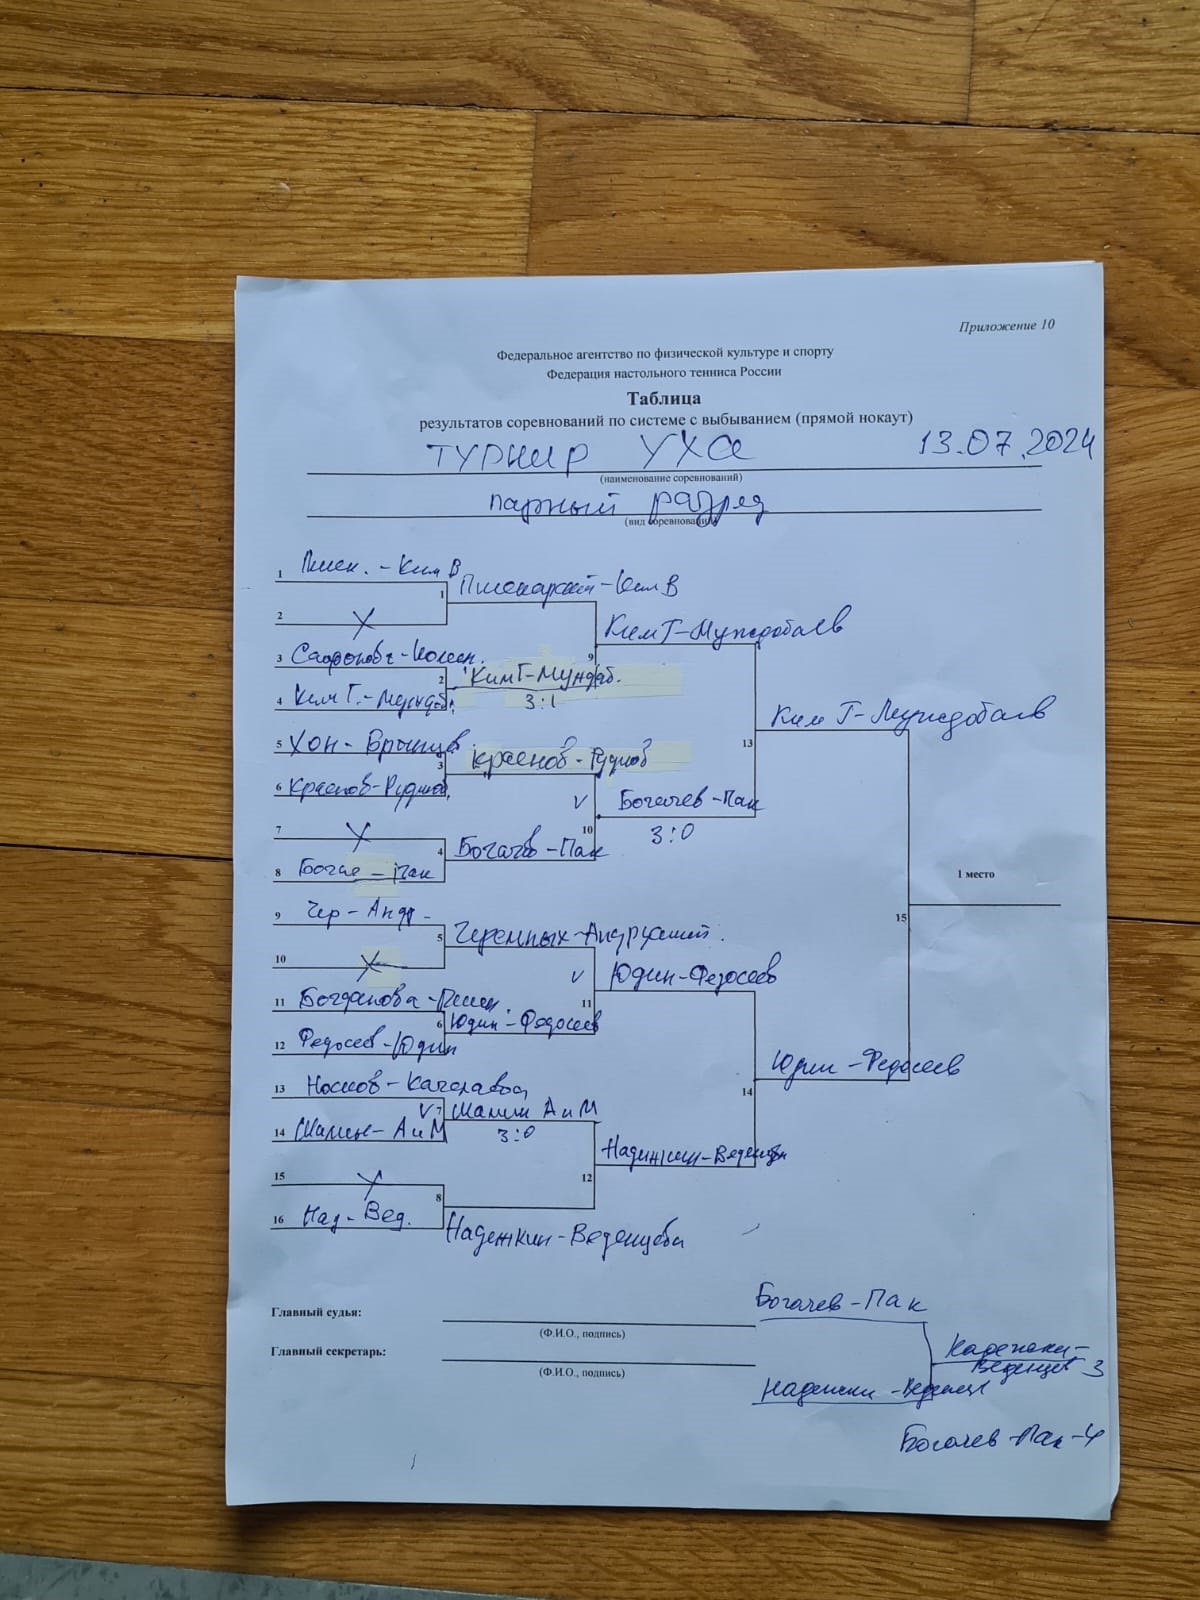 Приложение 10
Федеральное агентство по физической культуре и спорту
Федерация настольного тенниса России
Таблица
результатов соревнований по системе с выбыванием (прямой нокаут)
турнир УХА 13.07.2024
(наименование соревнований)
парный разряд
(вид соревнования)
1 Пшен. - Ким В
1 Пшенарский - Ким В
2 X
9 Ким Г - Мундобаев
3 Сафонова -
2 Ким Г - Мундаб.
3:1
4 Ким Г. - Мундоб.
13 Ким Г - Мундобаев
5 Хон - Брынцев
3 Краснов - Рудков
6 Краснов - Рудков
V 10 Богачев - Пак
3:0
7 X
4 Богачев - Пак
8 Богач - Пак
1 место
15
9 Чер - Андр -
5 Черемных - Андрусский.
10 X
V 11 Юдин - Федосеев
11 Богданова - Пшен.
6 Юдин - Федосеев
12 Федосеев - Юдин
14 Юдин - Федосеев
13 Носков -
V 7 Шалин А и М
3:0
14 Шалин - А и М
12 Надежкин - Веденцев
15 X
8 Надежкин - Веденцева
16 Над - Вед.
Главный судья:
(Ф.И.О., подпись)
Главный секретарь:
(Ф.И.О., подпись)
Богачев - Пак
Надежкин - Веденцев 3
Надежкин - Веденцев
Богачев - Пак - 4